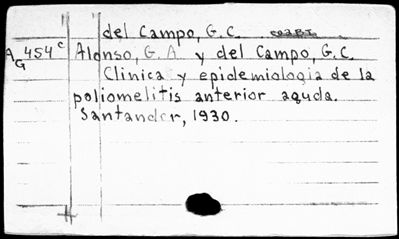 del Campo, G.C.
AG454c Alonso, G.A. y del Campo, G.C.
Clinica y epidemiologia de la
poliomelitis anterior aguda.
Santander, 1930.